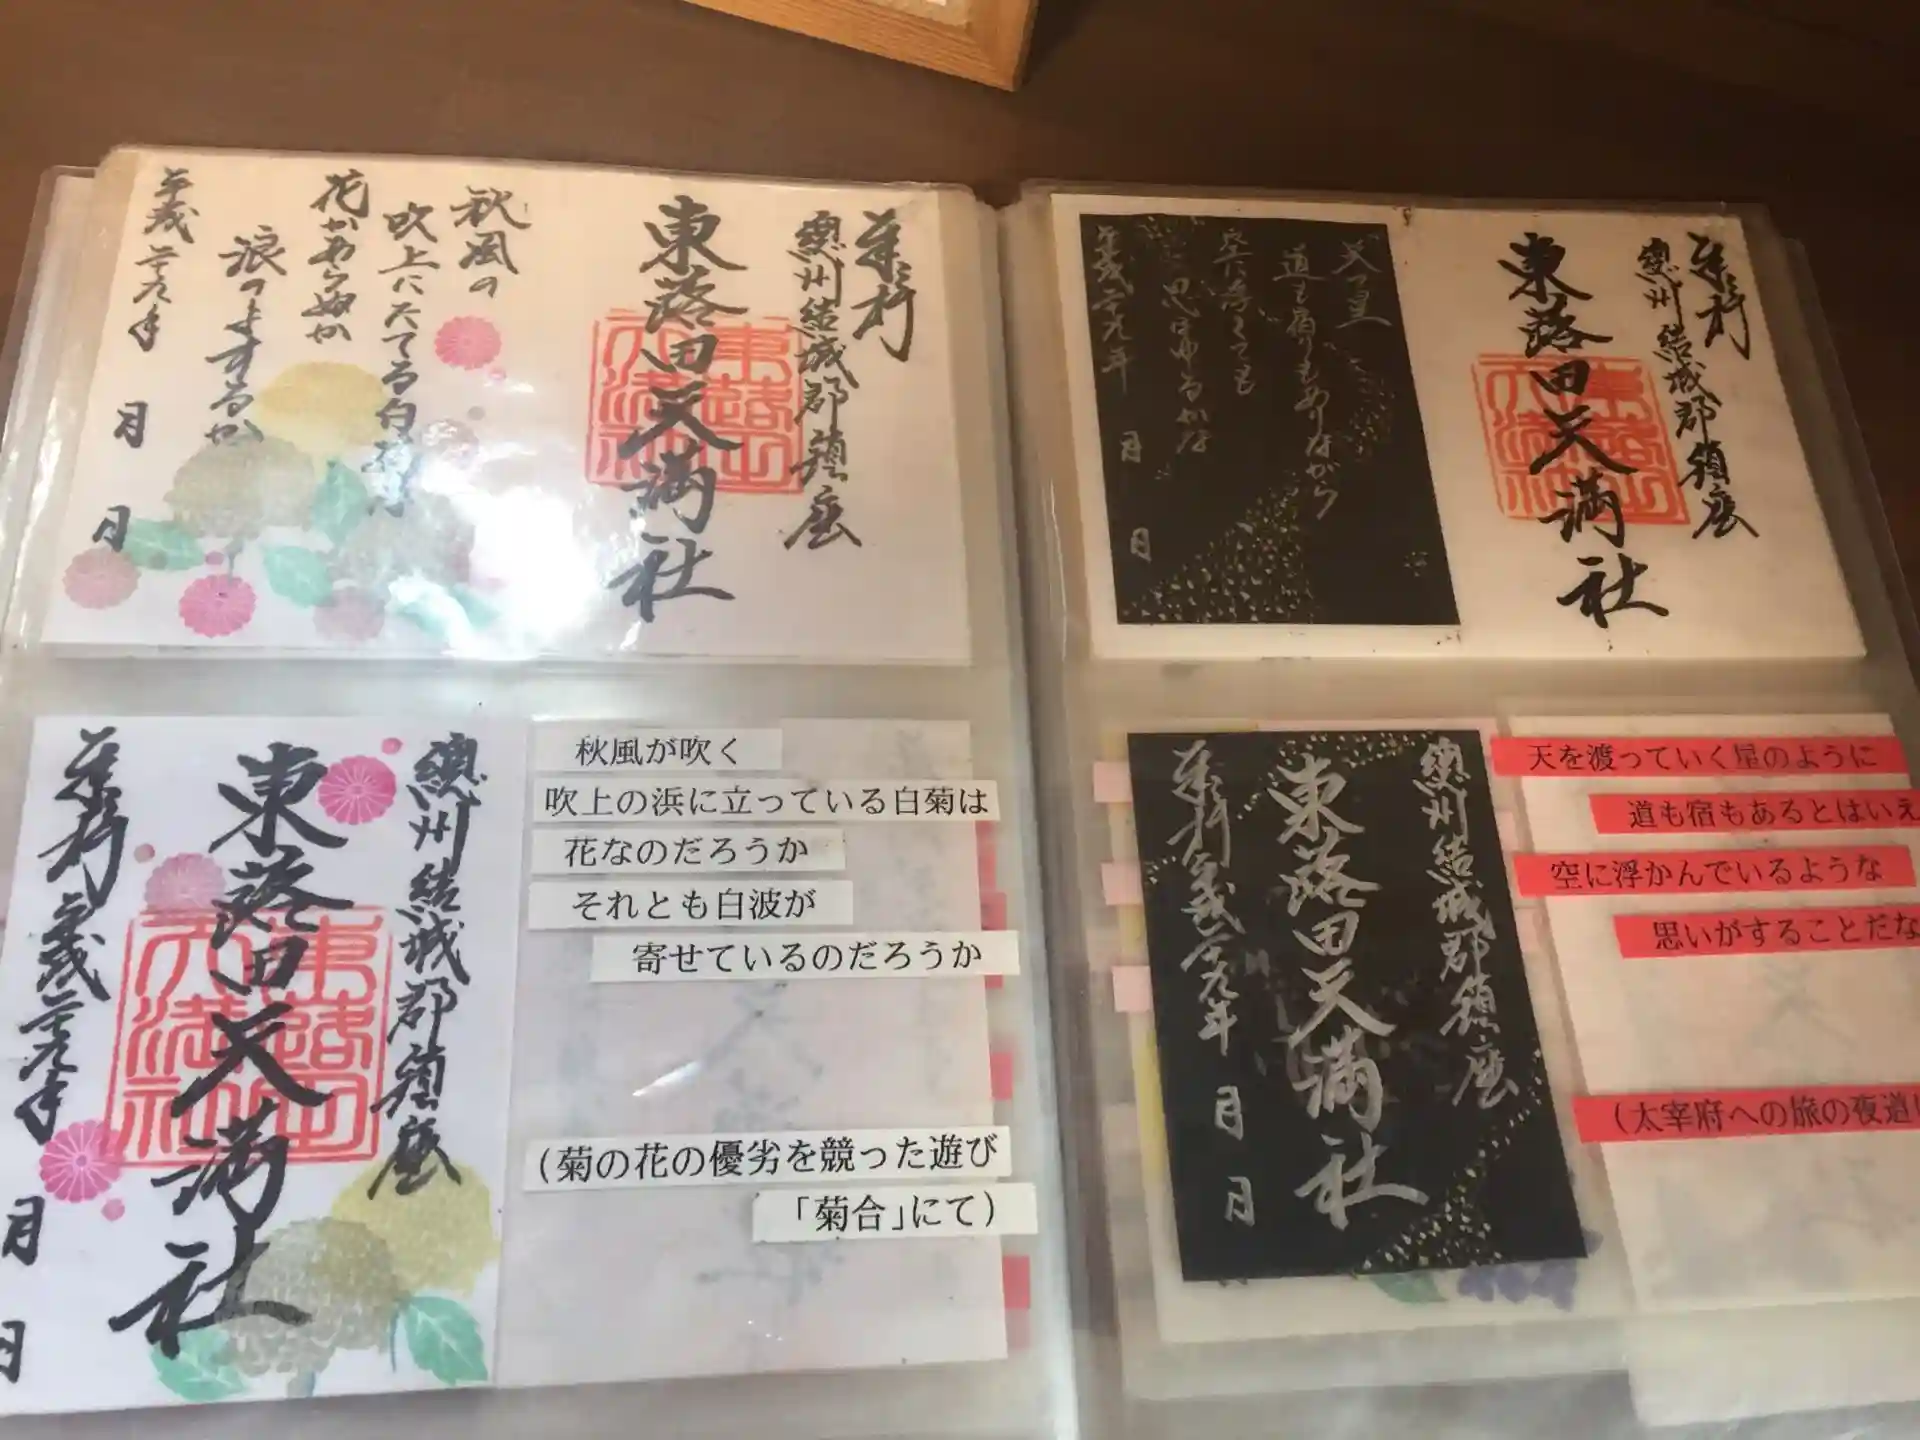 奉拝
總州結城郡鎮座
東蕗田天満社
東蕗田天満社
秋風の
吹上にたてる白菊は
花かあらぬか
浪のよするか
平成二十九年 月 日
奉拝
總州結城郡鎮座
東蕗田天満社
東蕗田天満社
天つ星
道も宿りもありながら
空に浮ても
思ほゆるかな
平成二十九年 月 日
總州結城郡鎮座
東蕗田天満社
東蕗田天満社
奉拝 平成二十九年 月 日
秋風が吹く
吹上の浜に立っている白菊は
花なのだろうか
それとも白波が
寄せているのだろうか
(菊の花の優劣を競った遊び
「菊合」にて)
總州結城郡鎮座
東蕗田天満社
奉拝 平成二十九年 月 日
天を渡っていく星のように
道も宿もあるとはいえ
空に浮かんでいるような
思いがすることだな
(太宰府への旅の夜道